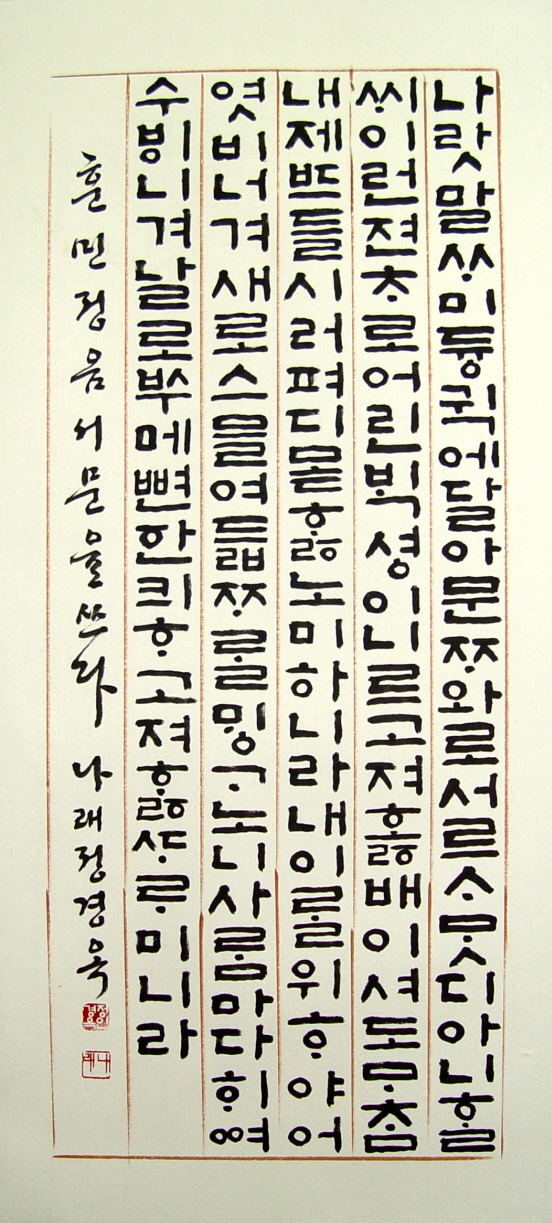 나랏말ᄊᆞ미듕귁에달아문ᄍᆞ와로서르ᄉᆞᄆᆞᆺ디아니ᄒᆞᆯ
씨이런젼ᄎᆞ로어린ᄇᆡᆨ셩이니르고져ᄒᆞᇙ배이셔도ᄆᆞᄎᆞᆷ
내제ᄠᅳ들시러펴디몯ᄒᆞᇙ노미하니라내이ᄅᆞᆯ위ᄒᆞ야어
엿비너겨새로스믈여듧ᄍᆞᄅᆞᆯᄆᆡᇰᄀᆞ노니사ᄅᆞᆷ마다ᄒᆡᅇᅧ
수ᄫᅵ니겨날로ᄡᅮ메뼌한킈ᄒᆞ고져ᄒᆞᇙᄯᆞᄅᆞ미니라
훈민정음서문을쓰다 나래정경욱
나래